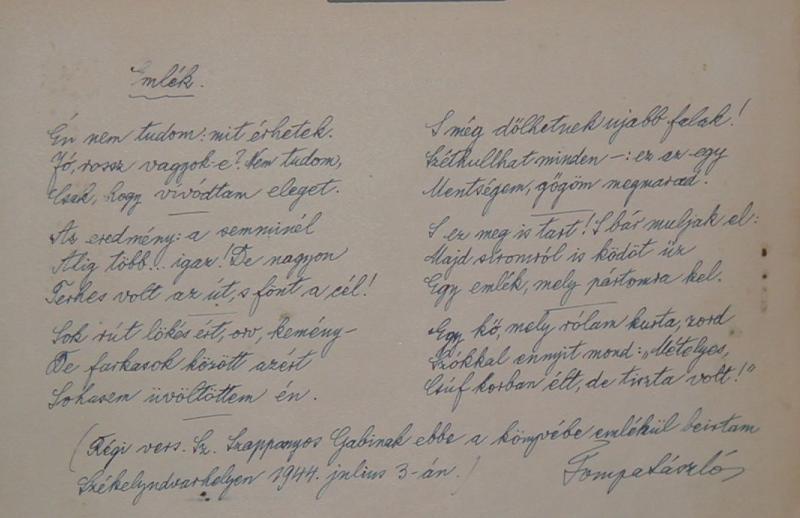 Emlék.
Én nem tudom: mit érhetek.
Jó, rossz vagyok-e? Nem tudom,
Csak, hogy vívódtam eleget.
Az eredmény: a semminél
Alig több... igaz! De nagyon
Terhes volt az út, s fönt a cél!
Sok rút lökés ért, orv, kemény –
De farkasok között azért
Sohasem üvöltöttem én.
S még dőlhetnek ujabb falak!
Szétkullhat minden –: ez az egy
Mentségem, gőgöm megmarad.
S ez meg is tart! S bár muljak el:
Majd síromról is ködöt űz
Egy emlék, mely pártomra kel.
Egy kő, mely rólam kurta, zord
Szókkal ennyit mond: „Mételyes,
Csúf korban élt, de tiszta volt!"
(Régi vers. Sz. Szappanyos Gabinak ebbe a könyvébe emlékül beirtam
Székelyudvarhelyen 1944. július 3-án.)
Tompa László